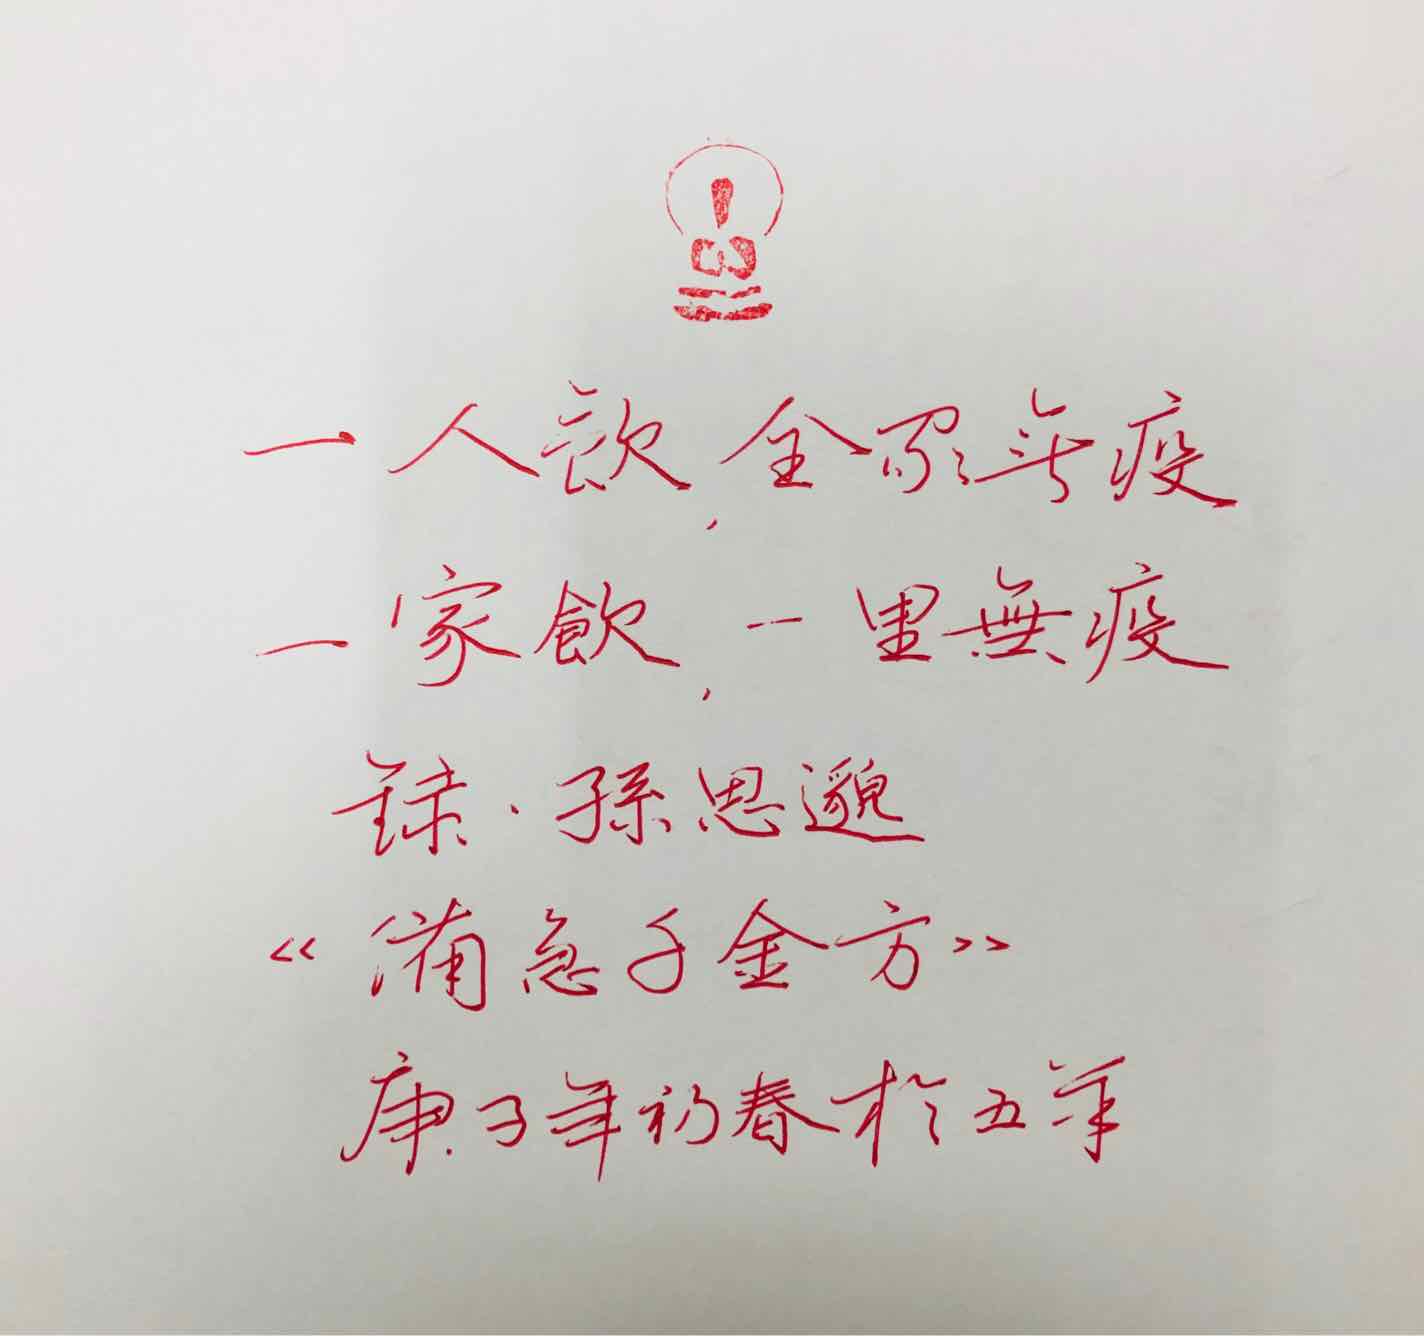 一人飲，全家無疫
一家飲，一里無疫
録·孫思邈
《備急千金方》
庚子年初春於五羊